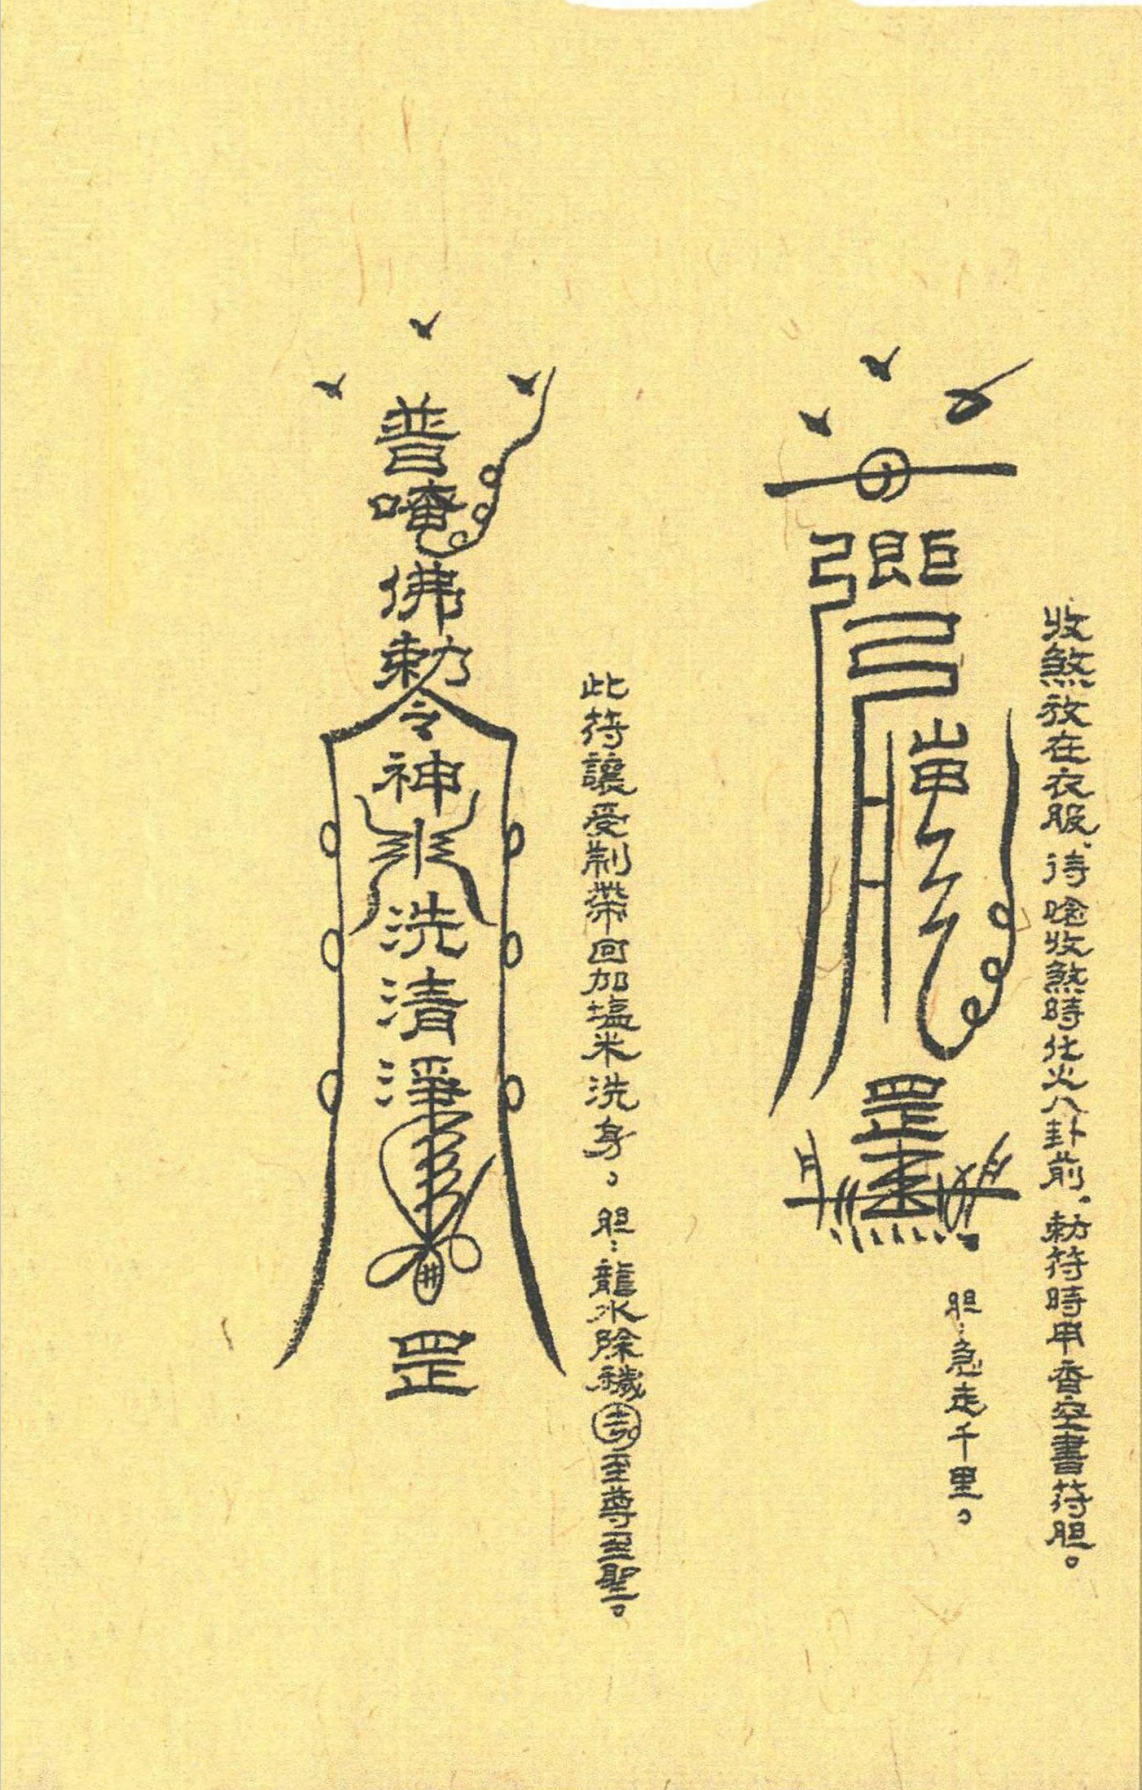 收煞放在衣服、待唸收煞時化火八卦前、勅符時用香空書符胆。
罡
胆：急走千里。
此符讓受制帶回加塩米洗身。胆：龍水除穢 至尊至聖。
普唵佛勅令神水洗清淨罡